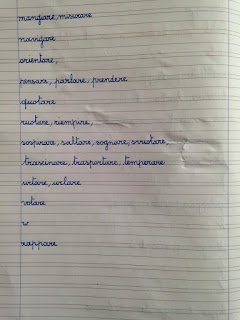 mangiare, misurare
navigare
orientare,
pensare, parlare, prendere
quotare
ruotare, riempire,
sospirare, saltare, sognare, svuotare,
trascinare, trasportare, temperare
urtare, urlare
votare
w
zappare